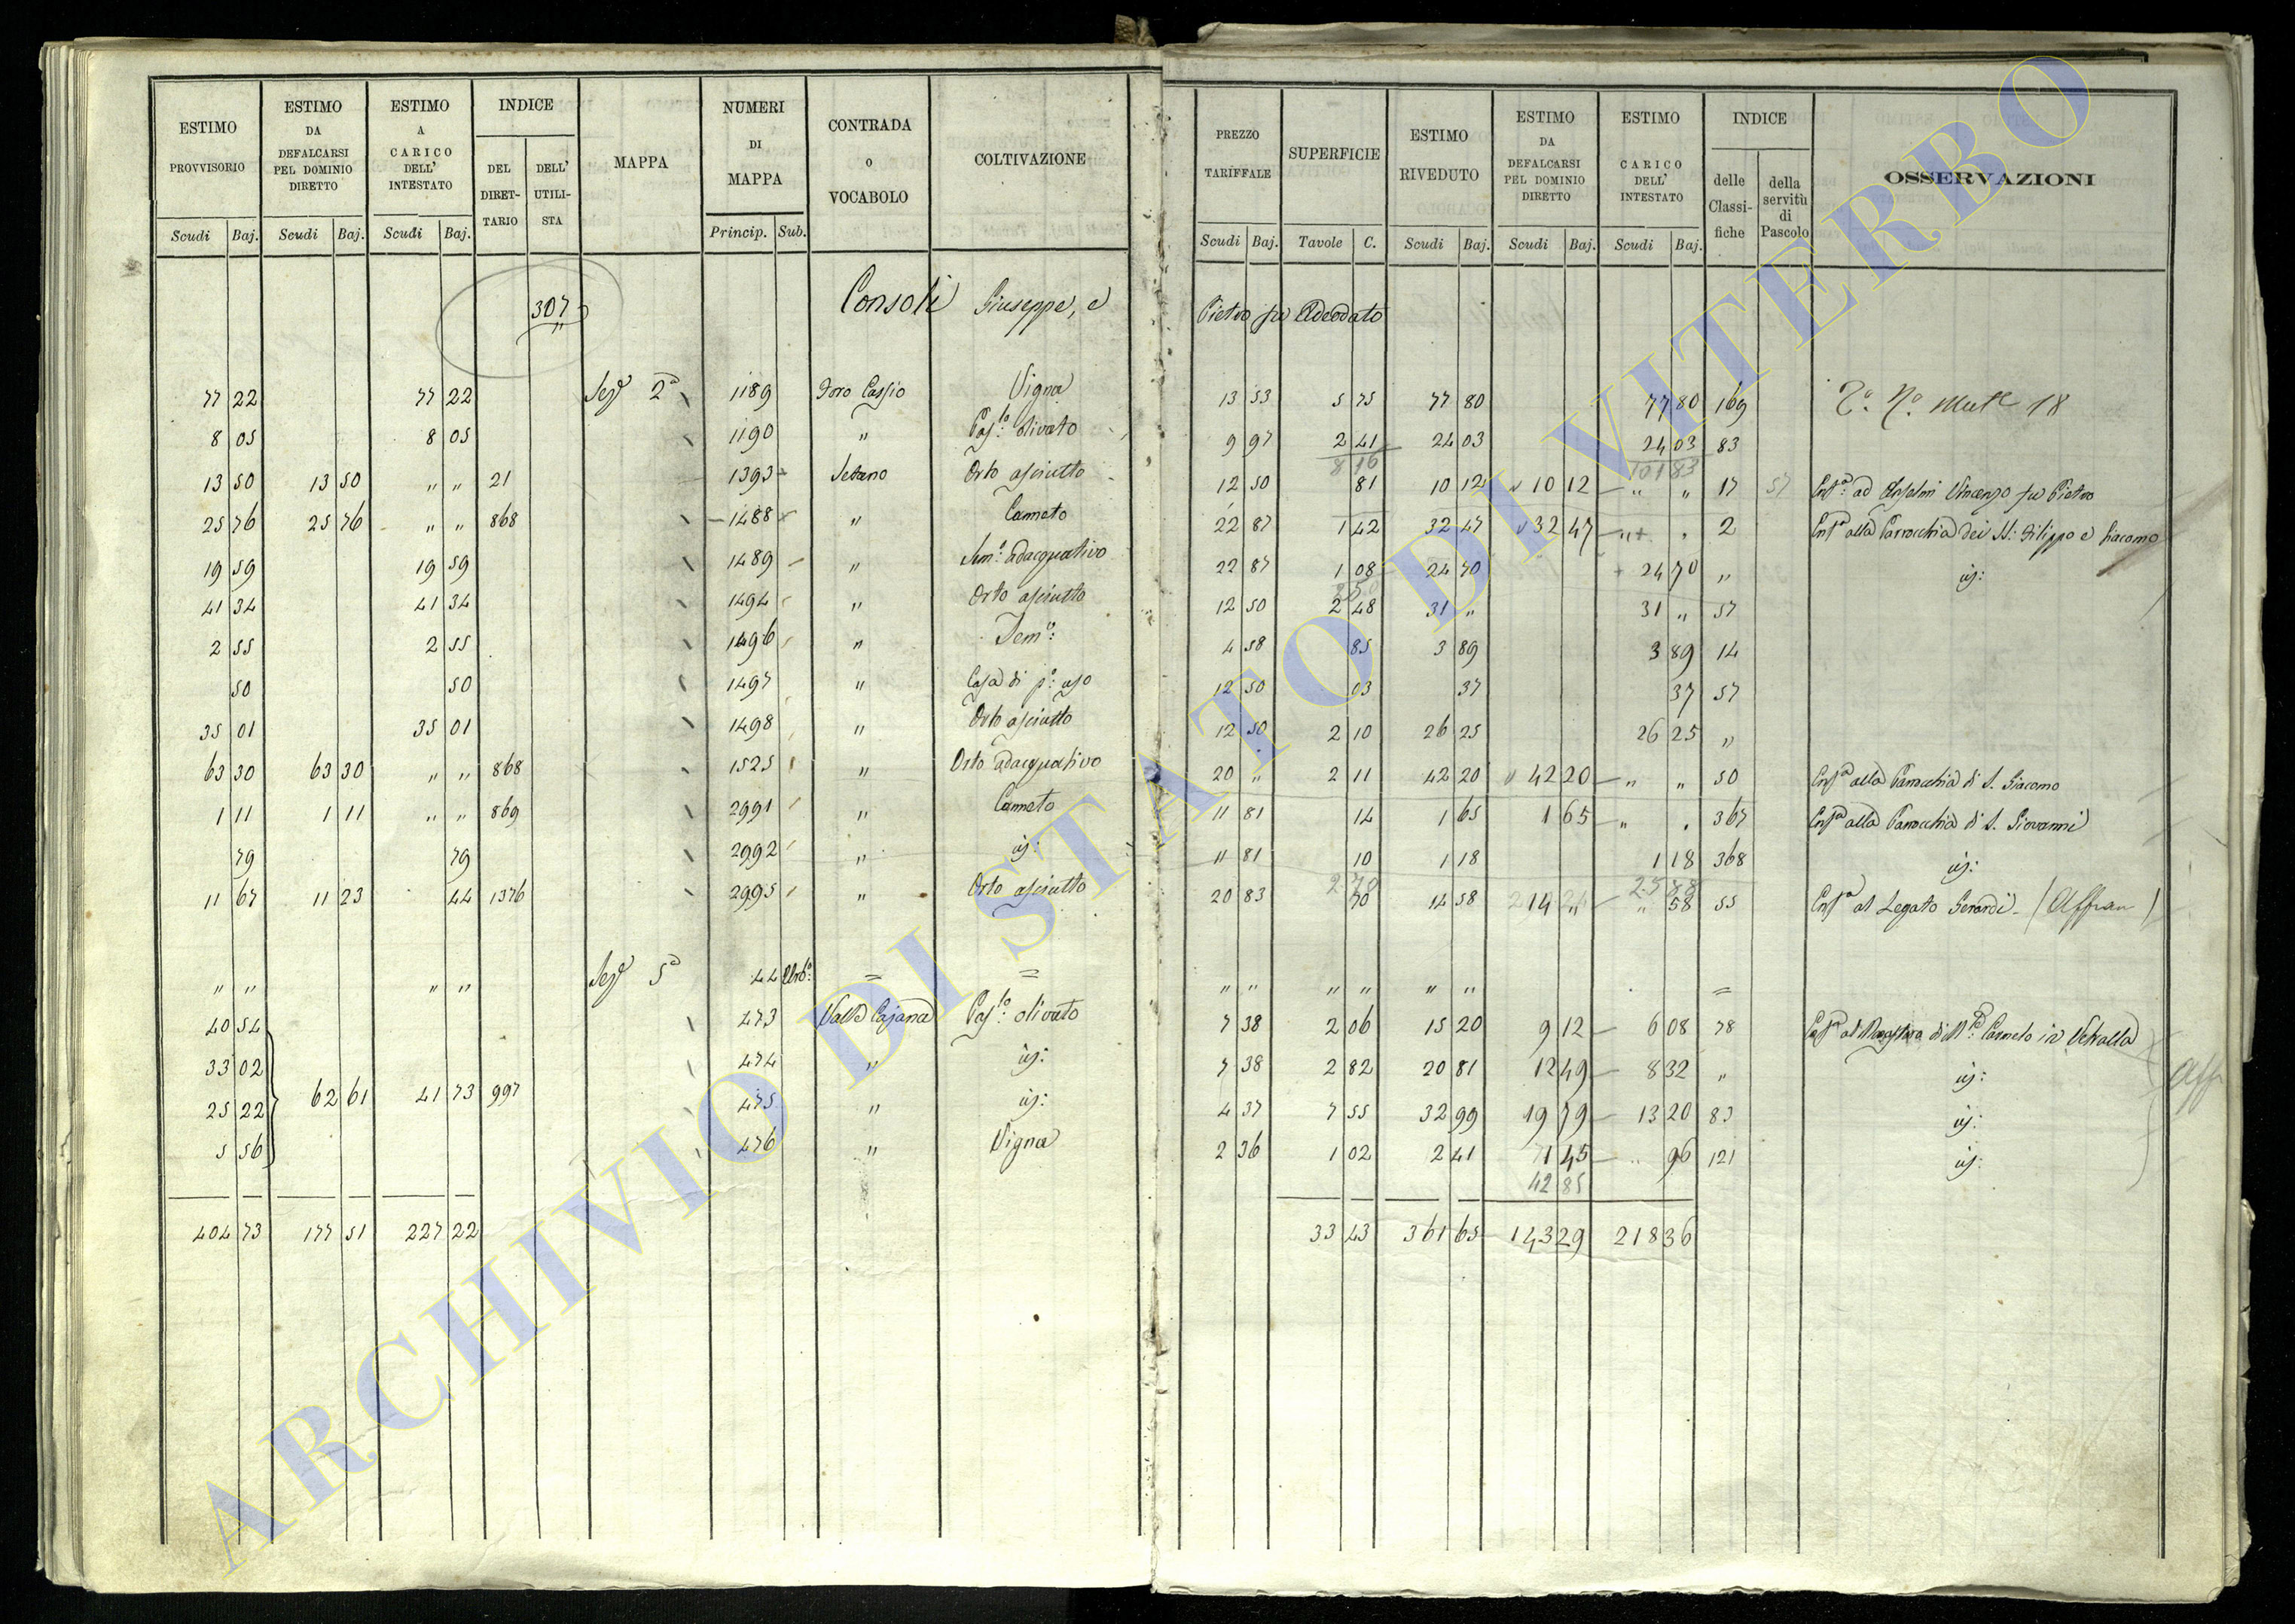 ESTIMO PROVVISORIO | ESTIMO DA DEFALCARSI PEL DOMINIO DIRETTO | ESTIMO A CARICO DELL' INTESTATO | INDICE | MAPPA | NUMERI DI MAPPA | CONTRADA o VOCABOLO | COLTIVAZIONE | PREZZO TARIFFALE | SUPERFICIE | ESTIMO RIVEDUTO | ESTIMO DA DEFALCARSI PEL DOMINIO DIRETTO | ESTIMO CARICO DELL' INTESTATO | INDICE | OSSERVAZIONI
DEL DIRET-TARIO | DELL' UTILI-STA | delle Classi-fiche | della servitù di Pascolo
Scudi | Baj. | Scudi | Baj. | Scudi | Baj. | Princip. | Sub. | Scudi | Baj. | Tavole | C. | Scudi | Baj. | Scudi | Baj. | Scudi | Baj.
307 Consoli Giuseppe, e Pietro fu Adeodato
77 22 | 77 22 | Sez.e 2a | 1189 | Foro Cassio | Vigna | 13 53 | 5 75 | 77 80 | 77 80 | 169 | 18
8 05 | 8 05 | 1190 | " | Pas.lo olivato | 9 97 | 2 41 | 24 03 | 24 03 | 83
8 16 | 101 83
13 50 | 13 50 | " " | 21 | 1393 | Setano | Orto asciutto | 12 50 | 81 | 10 12 | 10 12 | " " | 17 | 57 | Enf.a ad Anselmi Vincenzo fu Pietro
25 76 | 25 76 | " " | 868 | 1488 | " | Canneto | 22 87 | 1 42 | 32 47 | 32 47 | " " | 2 | Enf.a alla Parrocchia dei SS: Filippo e Giacomo
19 59 | 19 59 | 1489 | " | Sem.o adacquativo | 22 87 | 1 08 | 24 70 | 24 70 | " | ij:
41 34 | 41 34 | 1494 | " | Orto asciutto | 12 50 | 2 48 | 31 " | 31 " | 57
2 55 | 2 55 | 1496 | " | Sem.o: | 4 58 | 85 | 3 89 | 3 89 | 14
50 | 50 | 1497 | " | Casa di p.o: uso | 12 50 | 03 | 37 | 37 | 57
35 01 | 35 01 | 1498 | " | Orto asciutto | 12 50 | 2 10 | 26 25 | 26 25 | "
63 30 | 63 30 | " " | 868 | 1525 | " | Orto adacquativo | 20 " | 2 11 | 42 20 | 42 20 | " " | 50 | Enf.a alla Parrocchia di S. Giacomo
1 11 | 1 11 | " " | 869 | 2991 | " | Canneto | 11 81 | 14 | 1 65 | 1 65 | " " | 367 | Enf.a alla Parrocchia di S. Giovanni
79 | 79 | 2992 | " | ij: | 11 81 | 10 | 1 18 | 1 18 | 368 | ij:
11 67 | 11 23 | 44 | 1376 | 2995 | " | Orto asciutto | 20 83 | 70 | 14 58 | 14 " | " 58 | 55 | Enf.a al Legato Gerardi - (Affran)
" " | " " | Sez.e 5a | 44 | = | = | " " | " " | " " | =
40 54 | 473 | Valle Cajana | Pas.lo olivato | 7 38 | 2 06 | 15 20 | 9 12 | 6 08 | 78 | di M.a Carmelo in Vetralla
33 02 | 474 | " | ij: | 7 38 | 2 82 | 20 81 | 12 49 | 8 32 | " | ij:
25 22 | 62 61 | 41 73 | 997 | 475 | " | ij: | 4 37 | 7 55 | 32 99 | 19 79 | 13 20 | 83 | ij:
5 56 | 476 | " | Vigna | 2 36 | 1 02 | 2 41 | 1 45 | 96 | 121 | ij:
42 85
404 73 | 177 51 | 227 22 | 33 43 | 361 65 | 143 29 | 218 36
Aff
ARCHIVIO DI STATO DI VITERBO